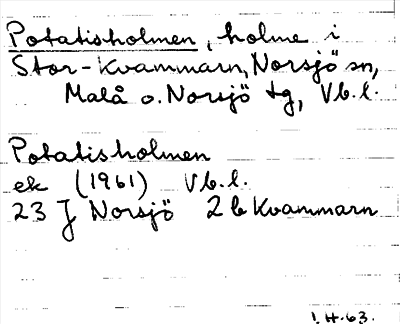 Potatisholmen, holme i
Stor-Kvammarn, Norsjö sn,
Malå o. Norsjö tg, Vb.l.
Potatisholmen
ek (1961) Vb.l.
23 J Norsjö 2 b Kvammarn
I.H.63.